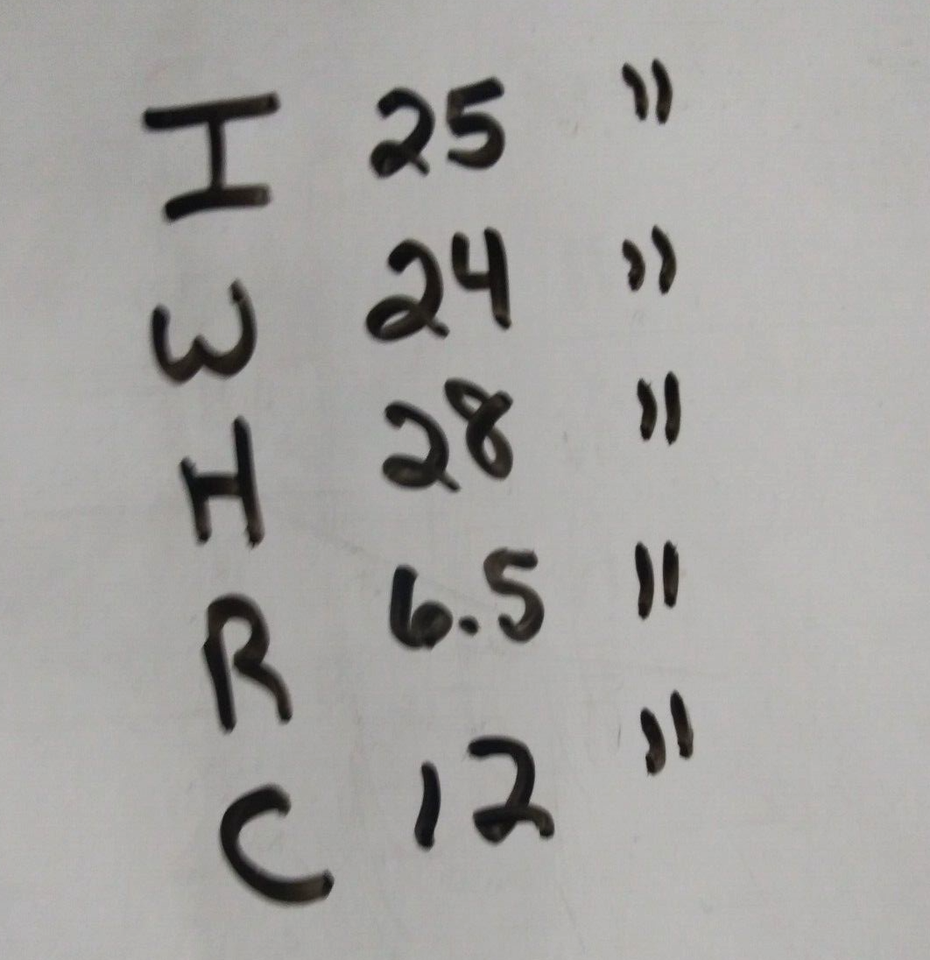 I 25 "
W 24 "
H 28 "
R 6.5 "
C 12 "